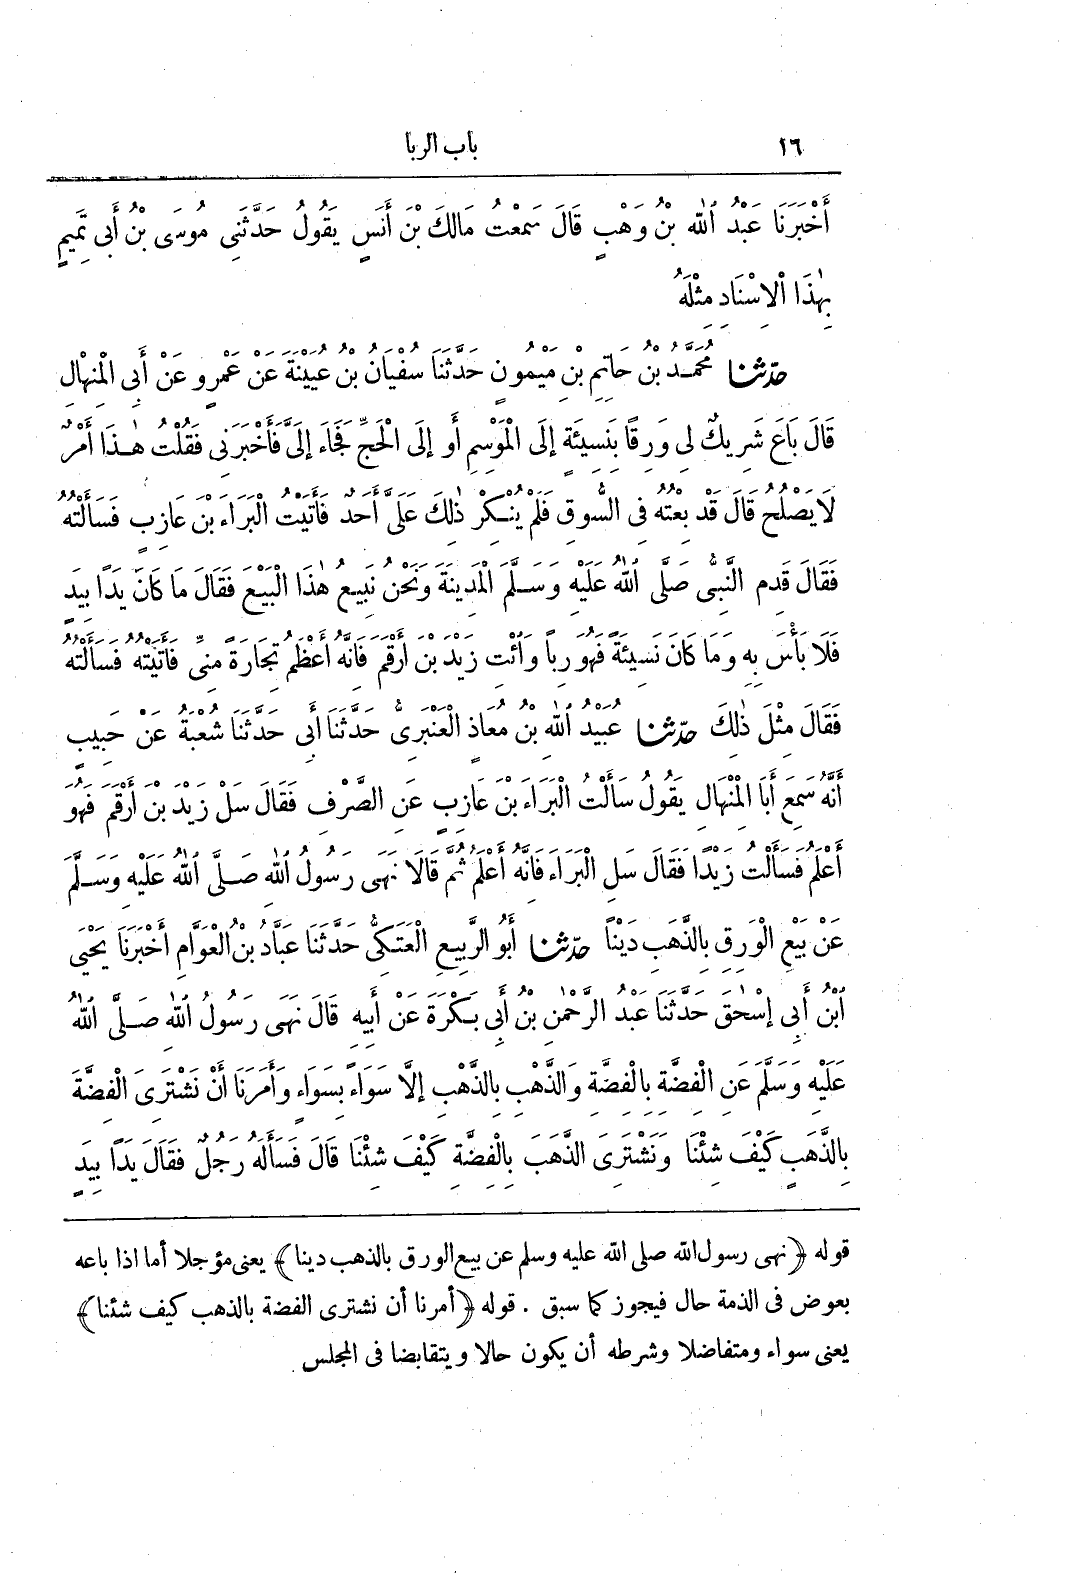 ١٦ باب الربا
أَخْبَرَنَا عَبْدُ اللهِ بْنُ وَهْبٍ قَالَ سَمِعْتُ مَالِكَ بْنَ أَنَسٍ يَقُولُ حَدَّثَنِى مُوسَى بْنُ أَبِى تَمِيمٍ
بِهٰذَا الْإِسْنَادِ مِثْلَهُ
حدّثنا مُحَمَّدُ بْنُ حَاتِمِ بْنِ مَيْمُونٍ حَدَّثَنَا سُفْيَانُ بْنُ عُيَيْنَةَ عَنْ عَمْرٍو عَنْ أَبِى الْمِنْهَالِ
قَالَ بَاعَ شَرِيكٌ لِى وَرِقًا بِنَسِيئَةٍ إِلَى الْمَوْسِمِ أَوْ إِلَى الْحَجِّ فَجَاءَ إِلَىَّ فَأَخْبَرَنِى فَقُلْتُ هٰذَا أَمْرٌ
لَا يَصْلُحُ قَالَ قَدْ بِعْتُهُ فِى السُّوقِ فَلَمْ يُنْكِرْ ذٰلِكَ عَلَىَّ أَحَدٌ فَأَتَيْتُ الْبَرَاءَ بْنَ عَازِبٍ فَسَأَلْتُهُ
فَقَالَ قَدِمَ النَّبِىُّ صَلَّى اللهُ عَلَيْهِ وَسَلَّمَ الْمَدِينَةَ وَنَحْنُ نَبِيعُ هٰذَا الْبَيْعَ فَقَالَ مَا كَانَ يَدًا بِيَدٍ
فَلَا بَأْسَ بِهِ وَمَا كَانَ نَسِيئَةً فَهُوَ رِبًا وَائْتِ زَيْدَ بْنَ أَرْقَمَ فَإِنَّهُ أَعْظَمُ تِجَارَةً مِنِّى فَأَتَيْتُهُ فَسَأَلْتُهُ
فَقَالَ مِثْلَ ذٰلِكَ حدّثنا عُبَيْدُ اللهِ بْنُ مُعَاذٍ الْعَنْبَرِىُّ حَدَّثَنَا أَبِى حَدَّثَنَا شُعْبَةُ عَنْ حَبِيبٍ
أَنَّهُ سَمِعَ أَبَا الْمِنْهَالِ يَقُولُ سَأَلْتُ الْبَرَاءَ بْنَ عَازِبٍ عَنِ الصَّرْفِ فَقَالَ سَلْ زَيْدَ بْنَ أَرْقَمَ فَهُوَ
أَعْلَمُ فَسَأَلْتُ زَيْدًا فَقَالَ سَلِ الْبَرَاءَ فَإِنَّهُ أَعْلَمُ ثُمَّ قَالَا نَهَى رَسُولُ اللهِ صَلَّى اللهُ عَلَيْهِ وَسَلَّمَ
عَنْ بَيْعِ الْوَرِقِ بِالذَّهَبِ دَيْنًا حدّثنا أَبُو الرَّبِيعِ الْعَتَكِىُّ حَدَّثَنَا عَبَّادُ بْنُ الْعَوَّامِ أَخْبَرَنَا يَحْيَى
ابْنُ أَبِى إِسْحٰقَ حَدَّثَنَا عَبْدُ الرَّحْمٰنِ بْنُ أَبِى بَكْرَةَ عَنْ أَبِيهِ قَالَ نَهَى رَسُولُ اللهِ صَلَّى اللهُ
عَلَيْهِ وَسَلَّمَ عَنِ الْفِضَّةِ بِالْفِضَّةِ وَالذَّهَبِ بِالذَّهَبِ إِلَّا سَوَاءً بِسَوَاءٍ وَأَمَرَنَا أَنْ نَشْتَرِىَ الْفِضَّةَ
بِالذَّهَبِ كَيْفَ شِئْنَا وَنَشْتَرِىَ الذَّهَبَ بِالْفِضَّةِ كَيْفَ شِئْنَا قَالَ فَسَأَلَهُ رَجُلٌ فَقَالَ يَدًا بِيَدٍ
قوله ﴿نهى رسول الله صلى الله عليه وسلم عن بيع الورق بالذهب دينا﴾ يعنى مؤجلا أما اذا باعه
بعوض فى الذمة حال فيجوز كما سبق . قوله ﴿أمرنا أن نشترى الفضة بالذهب كيف شئنا﴾
يعنى سواء ومتفاضلا وشرطه أن يكون حالا ويتقابضا فى المجلس